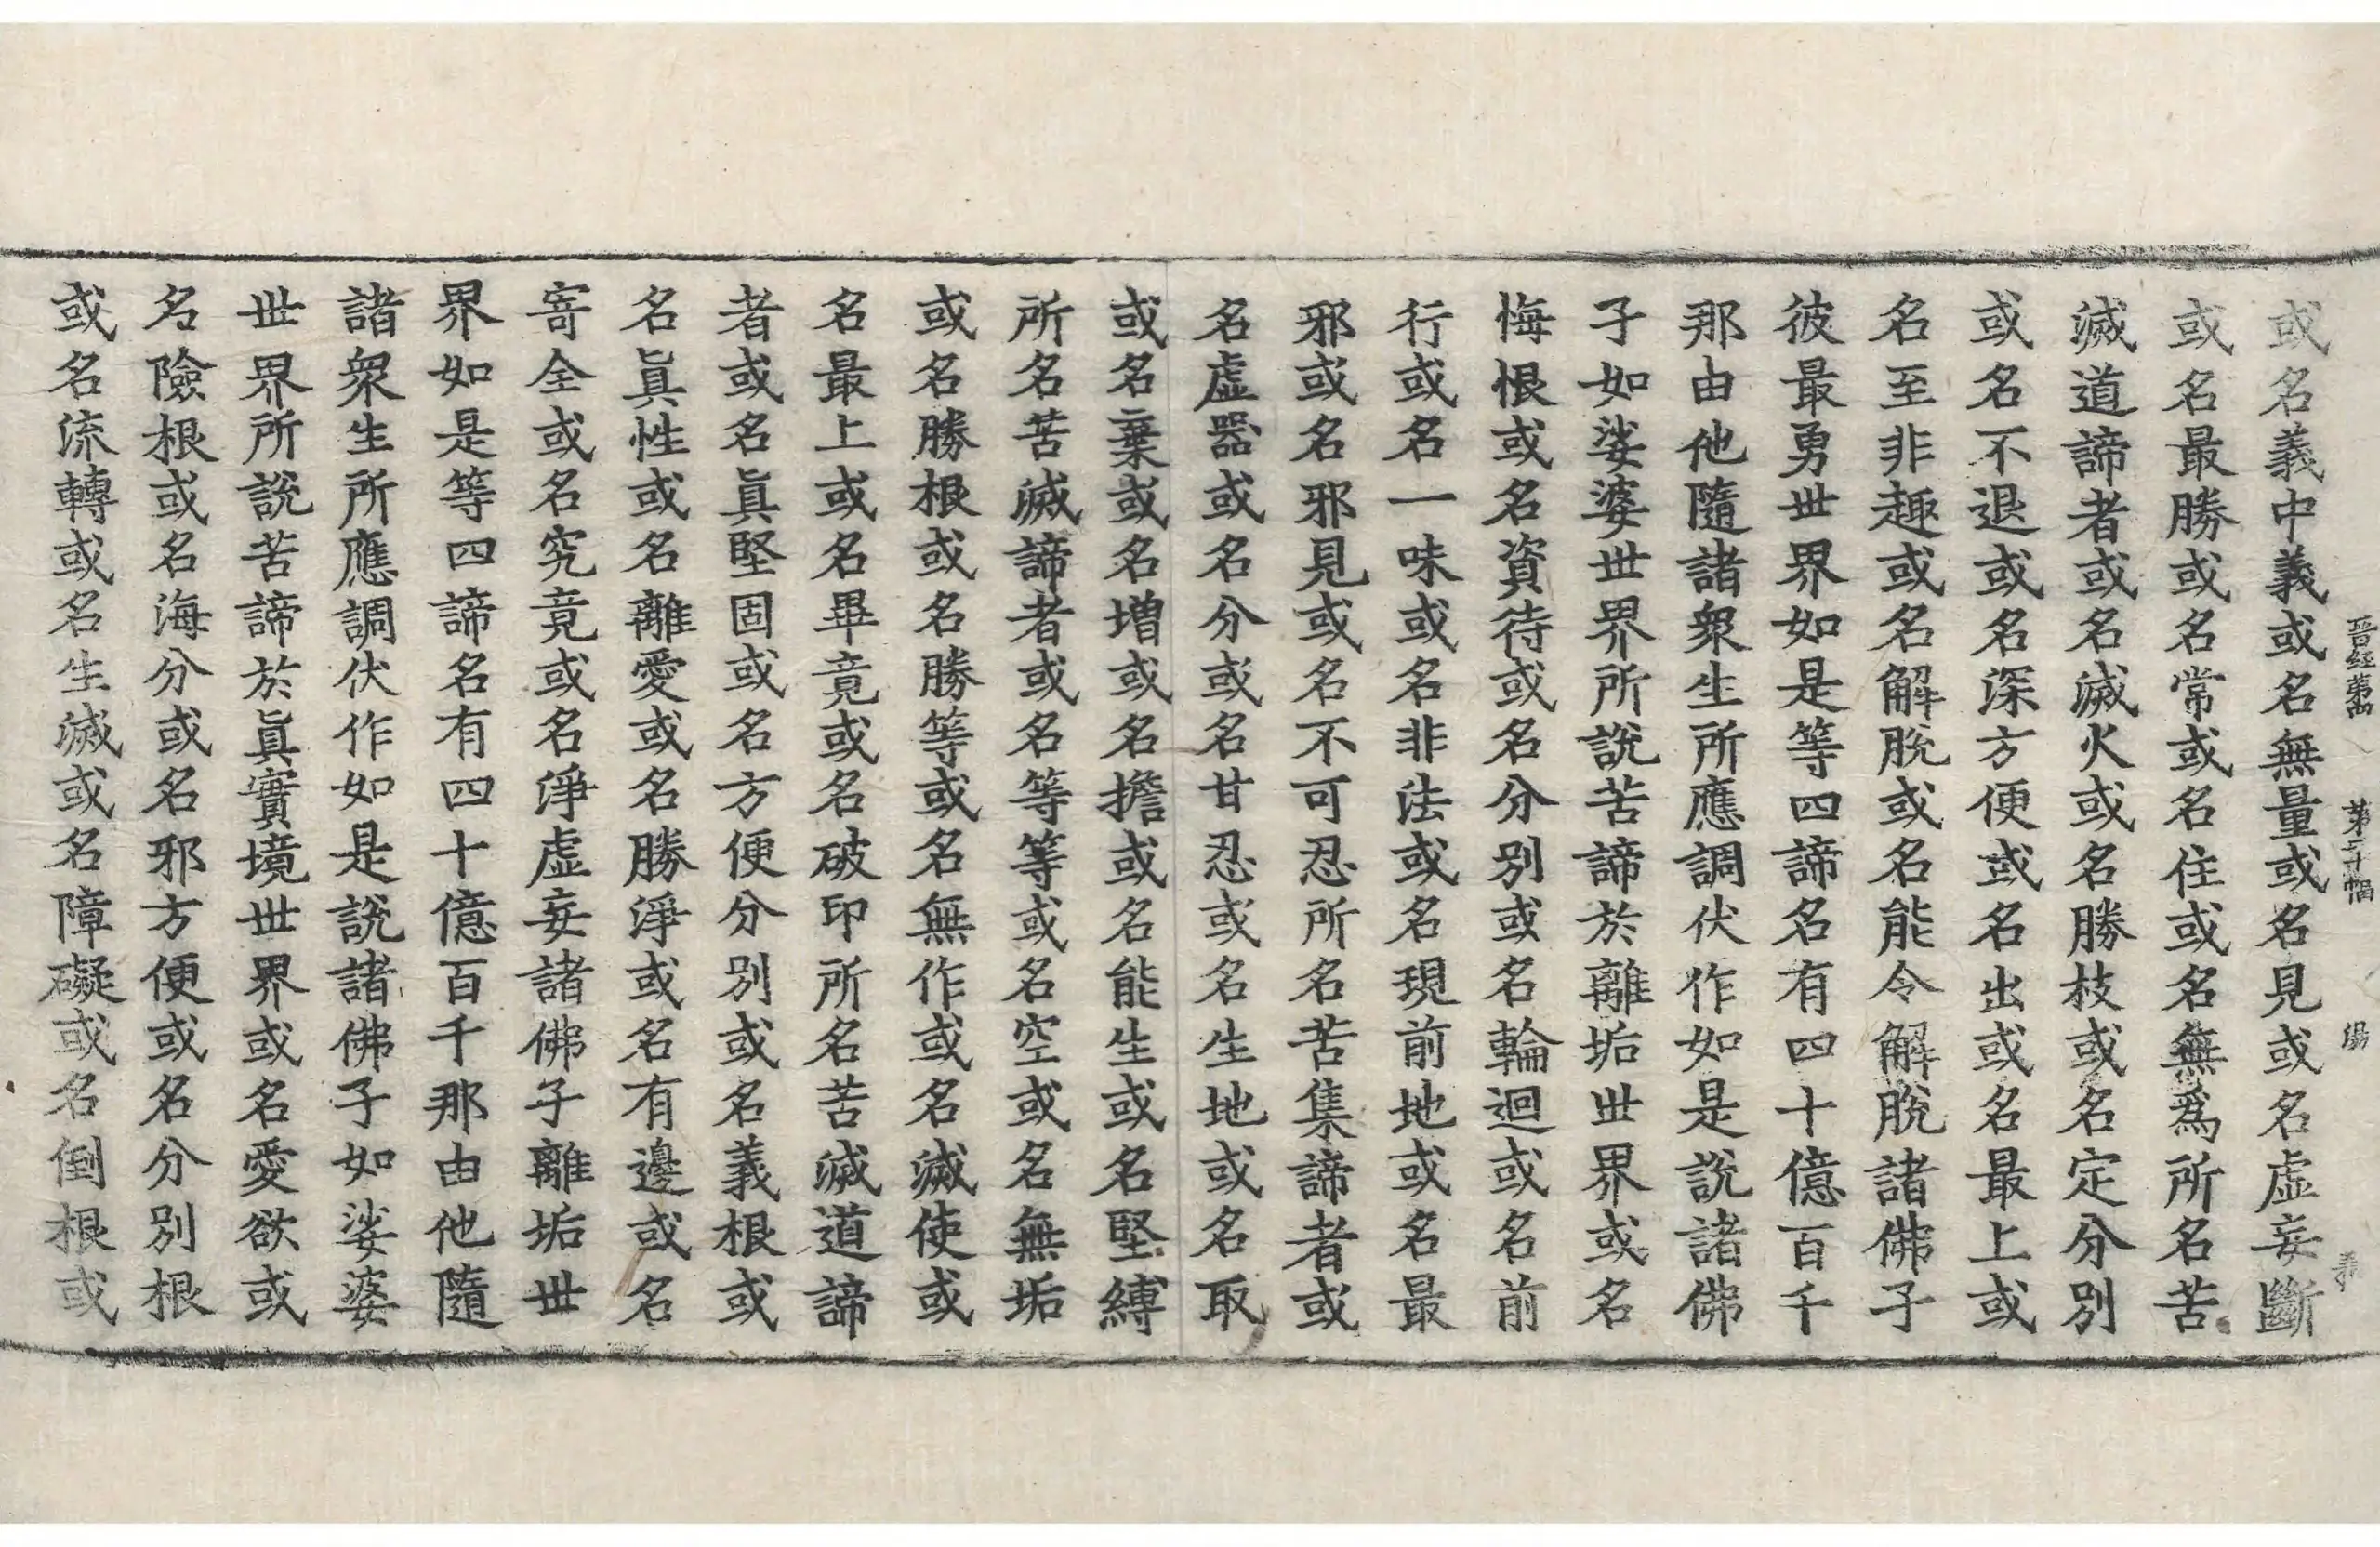 晋経第四 第二十幅 湯
或名義中義或名無量或名見或名虛妄斷
或名最勝或名常或名住或名無爲所名苦
滅道諦者或名滅火或名勝枝或名定分別
或名不退或名深方便或名出或名最上或
名至非趣或名解脫或名能令解脫諸佛子
彼最勇世界如是等四諦名有四十億百千
那由他隨諸衆生所應調伏作如是說諸佛
子如娑婆世界所說苦諦於離垢世界或名
悔恨或名資待或名分別或名輪迴或名前
行或名一味或名非法或名現前地或名最
邪或名邪見或名不可忍所名苦集諦者或
名虛器或名分或名甘忍或名生地或名取
或名棄或名增或名擔或名能生或名堅縛
所名苦滅諦者或名等等或名空或名無垢
或名勝根或名勝等或名無作或名滅使或
名最上或名畢竟或名破印所名苦滅道諦
者或名眞堅固或名方便分別或名義根或
名眞性或名離愛或名勝淨或名有邊或名
寄全或名究竟或名淨虛妄諸佛子離垢世
界如是等四諦名有四十億百千那由他隨
諸衆生所應調伏作如是說諸佛子如娑婆
世界所說苦諦於眞實境世界或名愛欲或
名險根或名海分或名邪方便或名分別根
或名流轉或名生滅或名障礙或名倒根或